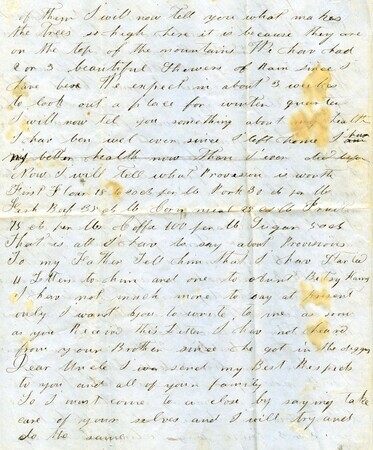 of them I will now tell you what makes
the trees so high here it is because they are
on the top of the mountains We have had
2 or 3 beautiful Showers of Rain since I
have been We expect in about 3 weeks
to look out a place for winter quarter
I will now tell you something about my health
I hav ben well ever since I left home I am
my better health now than I ever did before
Now I will tell what Provision is worth
First Flour 18 to 20 cts per lb Pork 30 cts per lb
Fresh Beef 35 cts lb Corn meal 25 cts lb Fruit
75 cts per lb Coffe 100 per lb Sugar 50 cts
That is all I have to say about Provisions
To my Father Tell him that I hav Started
4 Letters to him and one to Aunt Betsy
I hav not much more to say at present
only I want you to write to me as soon
as you Receive this Letter I hav not heard
from your Brother since he got in the diggins
Dear Uncle I can send my Best Respects
to you and all of your family
So I must come to a close by saying take
care of your selves and I will try and
do the same